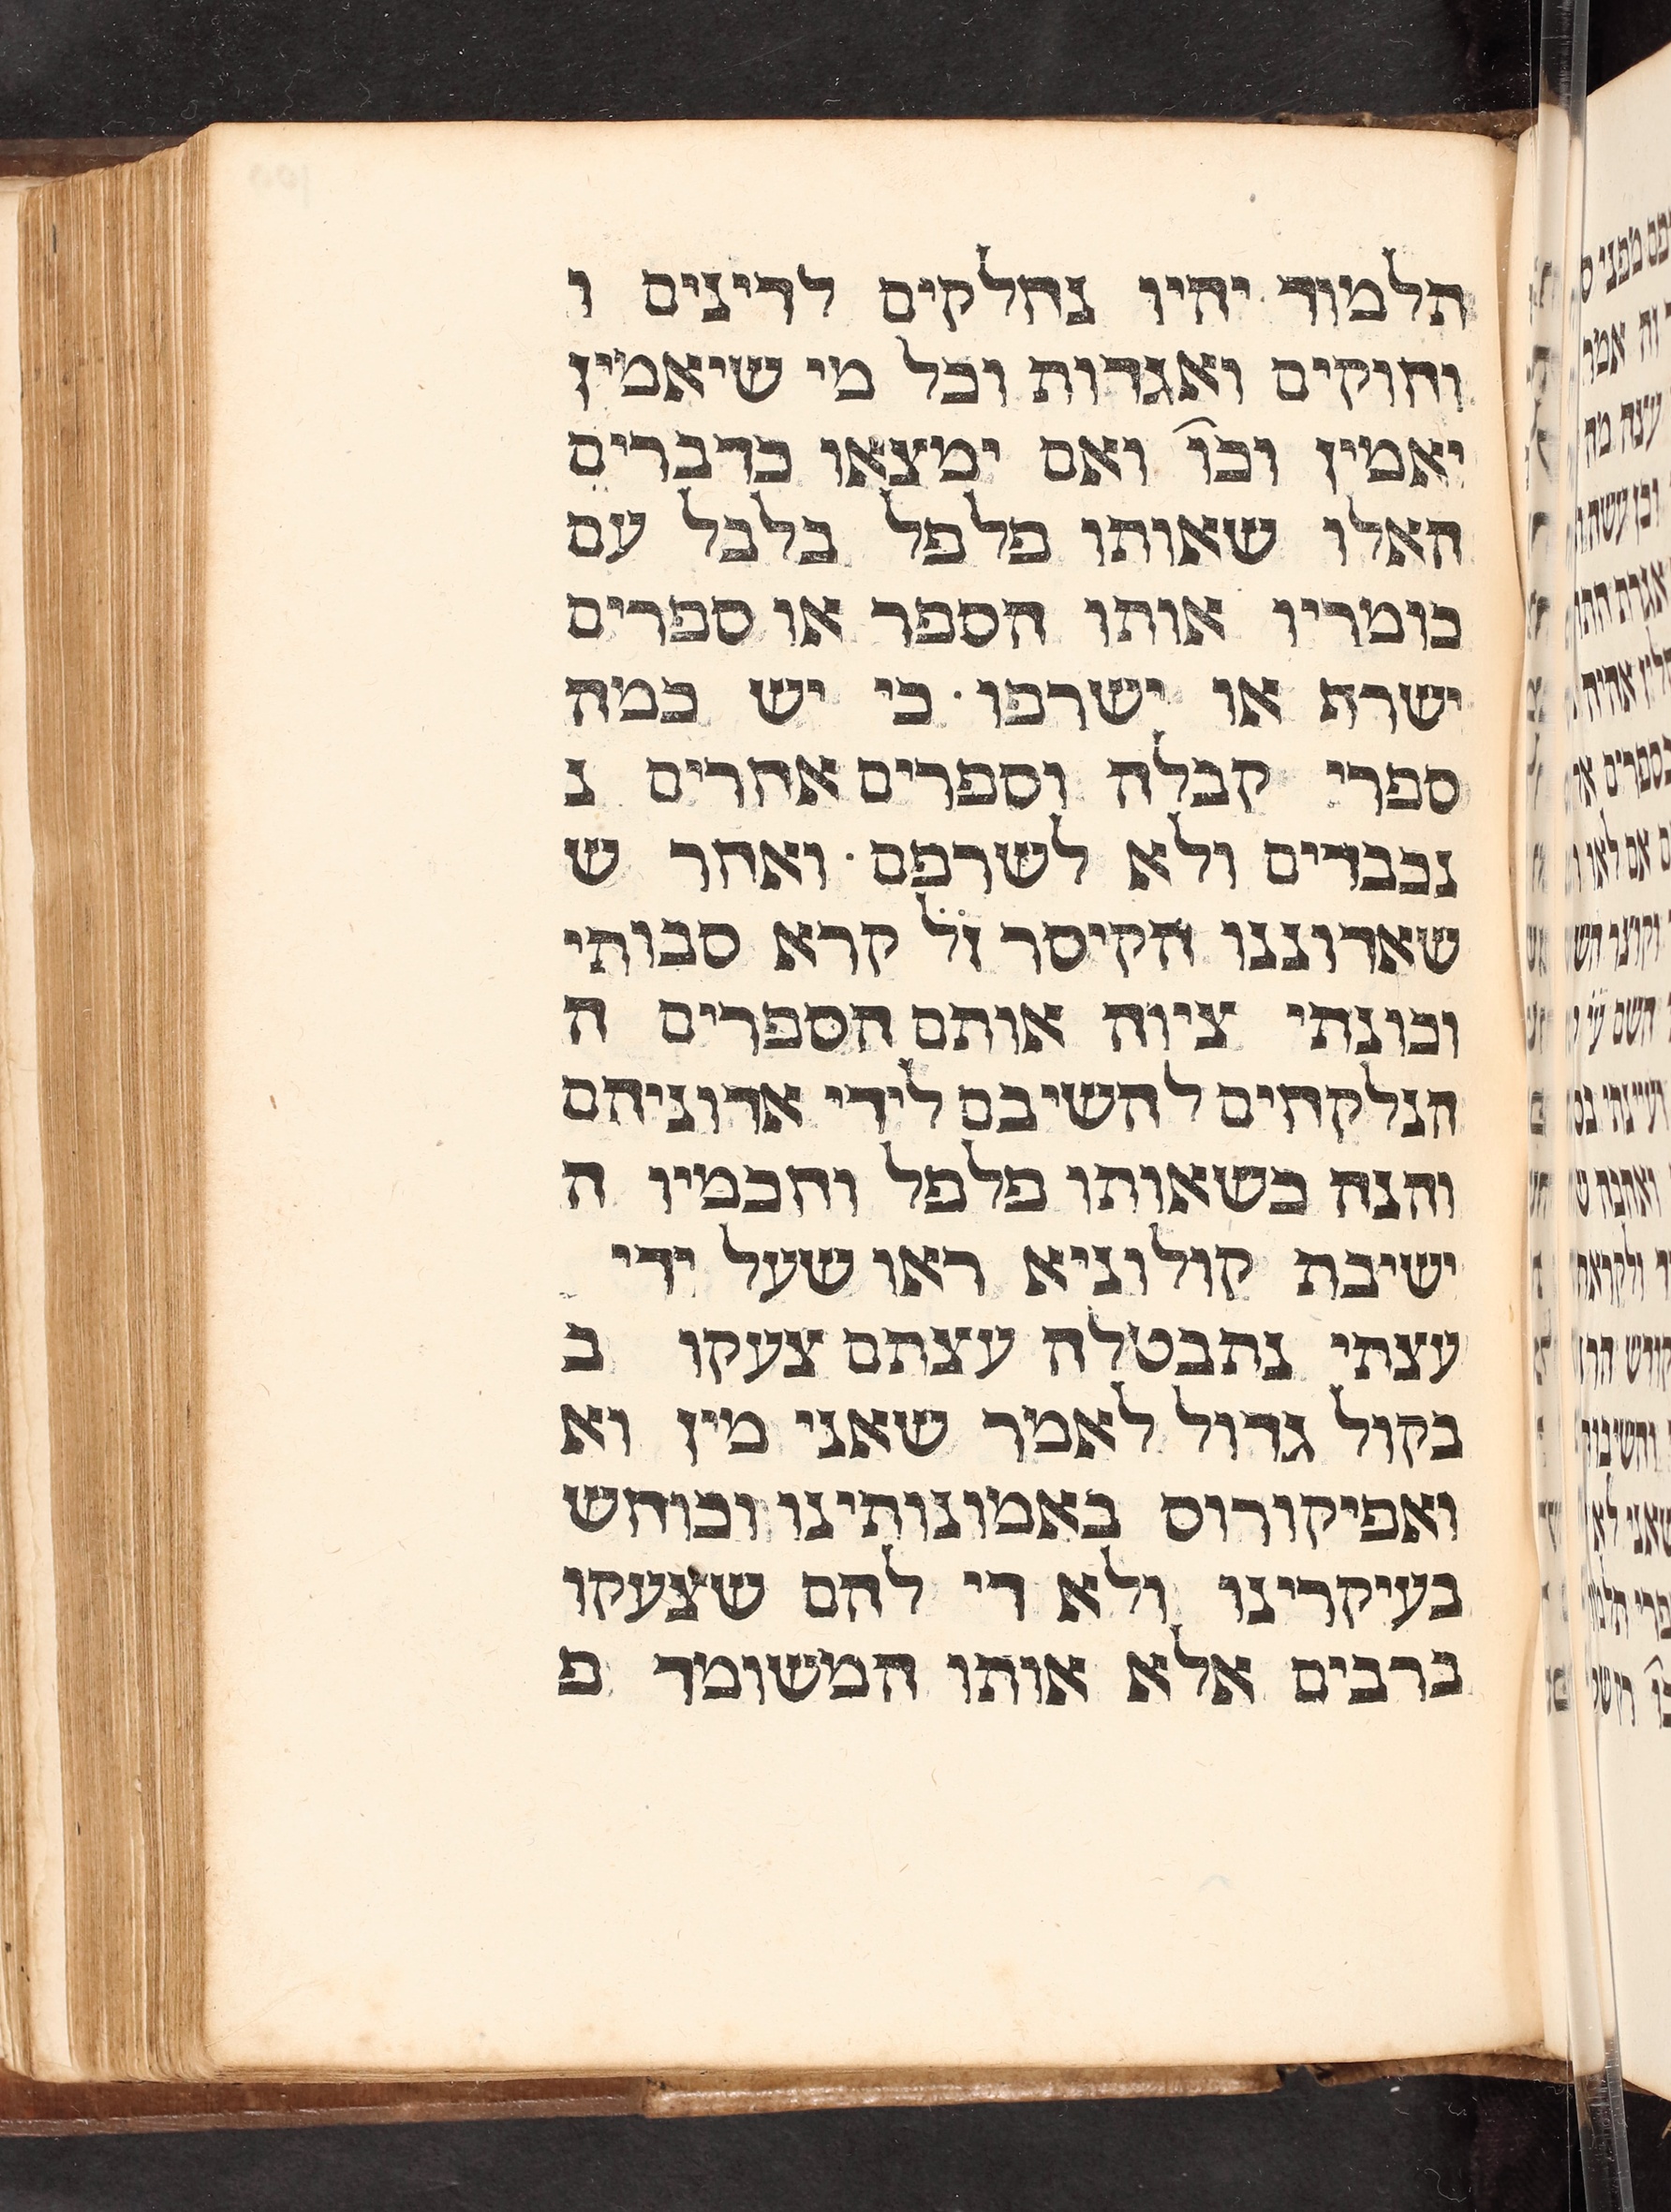 תלמוד יהיו נחלקים לדינים ו
וחוקים ואגדות וכל מי שיאמין
יאמין וכו ואם ימצאו כדברים
האלו שאותו פלפל בלבל עם
כומריו אותו הספר או ספרים
ישרף או ישרפו· כי יש כמה
ספרי קבלה וספרים אחרים נ
נכבדים ולא לשרפם· ואחר ש
שאדוננו הקיסר ו̇ל̇ קרא סבותי
וכונתי ציוה אותם הספרים ה
הנלקחים להשיבם לידי אדוניהם
והנה כשאותו פלפל וחכמיו ה
ישיבת קולוניא ראו שעל ידי
עצתי נתבטלה עצתם צעקו ב
בקול גדול לאמר שאני מין וא
ואפיקורוס באמונותינו וכוחש
בעיקרינו ולא די להם שצעקו
ברבים אלא אותו המשומד פ